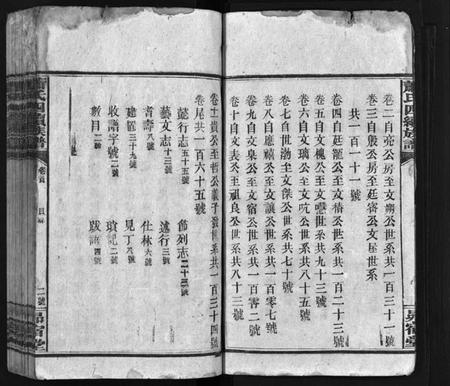 卷二自亮公房至文炳公世系共一百三十一號
卷三自殷公房至廷睿公文屋世系
共一百一十一號
卷四自廷瓏公至文椿公世系共一百二十三號
卷五自文槐公至文公世系共九十三號
卷六自文璃公至文公世系共八十五號
卷七自世泐公至文傑公世系共七十號
卷八自應禧公至文讓公世系共一百零七號
卷九自文泉公至文宿公世系共一百零二號
卷十自文表公至祖良公世系共八十三號
卷十一貴公至哲公義子發世系共一百三十四號
卷尾共一百六十五號
懿行志五十五號
節列志二十三號
藝文志十三號
述行三號
耆壽八號
仕林六號
建置三十九號
見丁八號
收譜字號二號
瑣記二號
數目二號
跋四號
氏四續族譜
四續族譜
卷首
目
二號